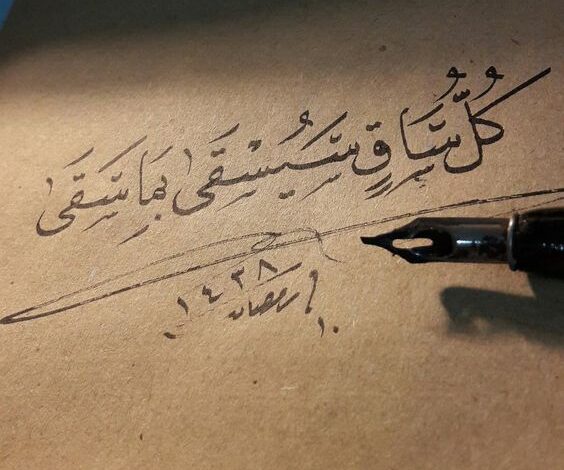 كُلُّ سَاقٍ سَيُسْقَى بِمَا سَقَى
١٠ رمضان
١٤٣٨